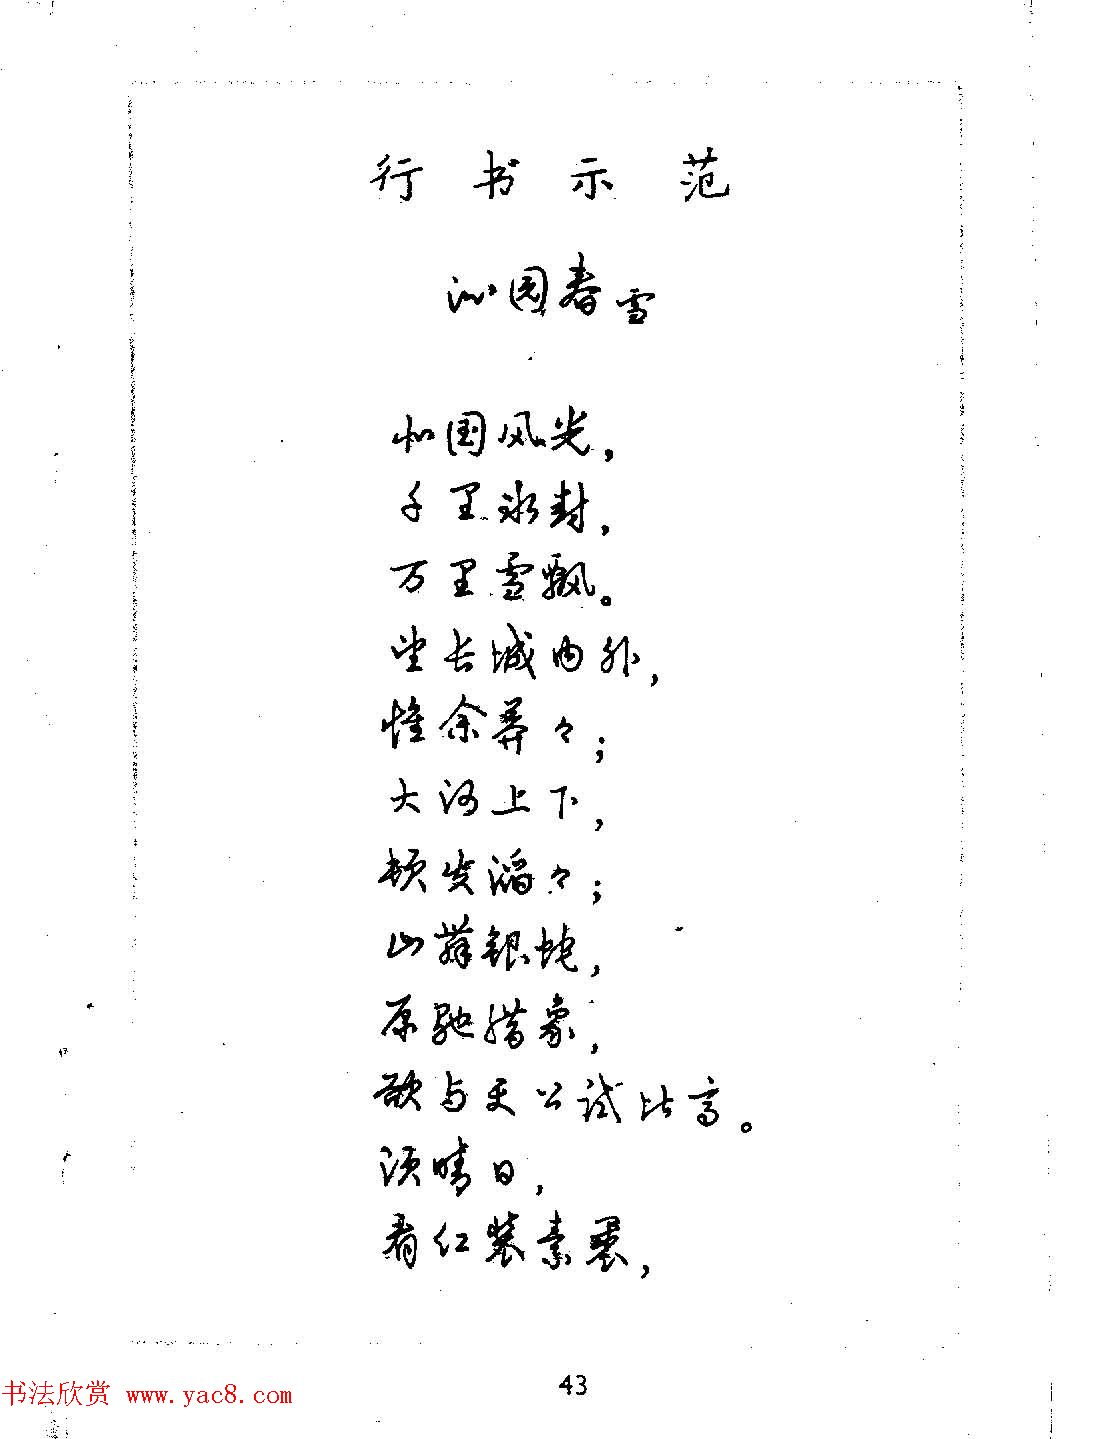 行书示范
沁园春雪
北国风光，
千里冰封，
万里雪飘。
望长城内外，
惟余莽々；
大河上下，
顿失滔々；
山舞银蛇，
原驰腊象，
欲与天公试比高。
须晴日，
看红装素裹，
43
书法欣赏 www.yac8.com